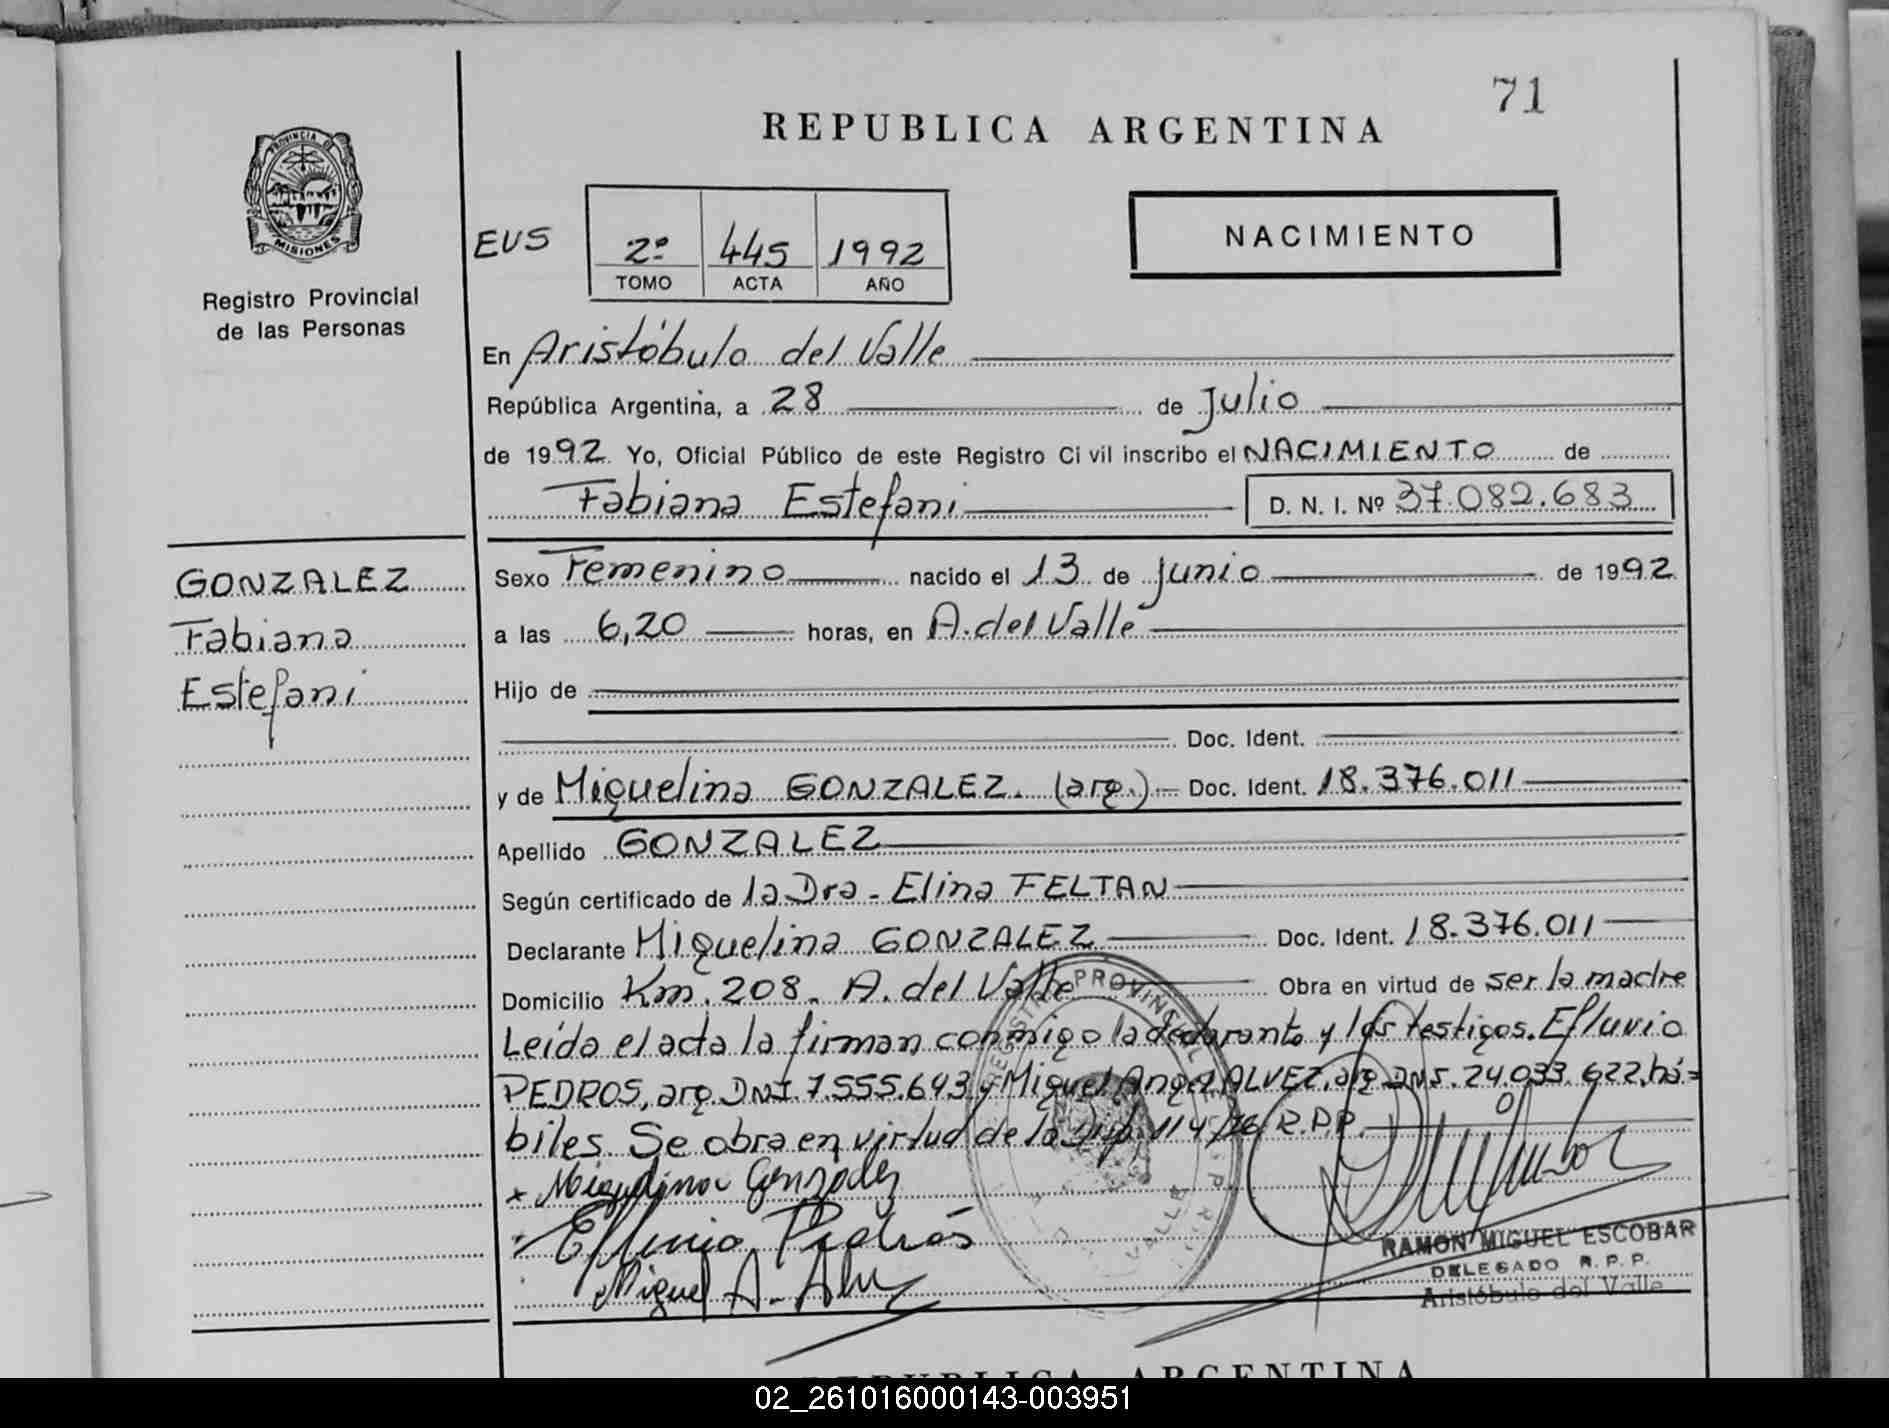 71
REPUBLICA ARGENTINA
PROVINCIA DE
MISIONES
Registro Provincial
de las Personas
EUS
2º 445 1992
TOMO ACTA AÑO
NACIMIENTO
En Aristóbulo del Valle
República Argentina, a 28 de Julio
de 1992 Yo, Oficial Público de este Registro Civil inscribo el NACIMIENTO de
Fabiana Estefani D. N. I. Nº 37.082.683
GONZALEZ
Fabiana
Estefani
Sexo Femenino nacido el 13 de junio de 1992
a las 6,20 horas, en A. del Valle
Hijo de
Doc. Ident.
y de Miguelina GONZALEZ. (arg.) Doc. Ident. 18.376.011
Apellido GONZALEZ
Según certificado de la Dra. Elina FELTAN
Declarante Miguelina GONZALEZ Doc. Ident. 18.376.011
Domicilio Km. 208. A. del Valle Obra en virtud de ser la madre
Leída el acta la firman conmigo la declarante y los testigos. Efluvio
PEDROS, arg. DNI. 7.555.643 y Miguel Angel ALVEZ, arg DNI. 24.033.622, há=
biles. Se obra en virtud de la Disp. 114/76 R.P.P.
x Miguelina Gonzalez
Efluvio Pedrós
Miguel A. Alvez
REGISTRO PROVINCIAL
VALLE
RAMON MIGUEL ESCOBAR
DELEGADO R. P. P.
Aristóbulo del Valle
REPUBLICA ARGENTINA
02_261016000143-003951